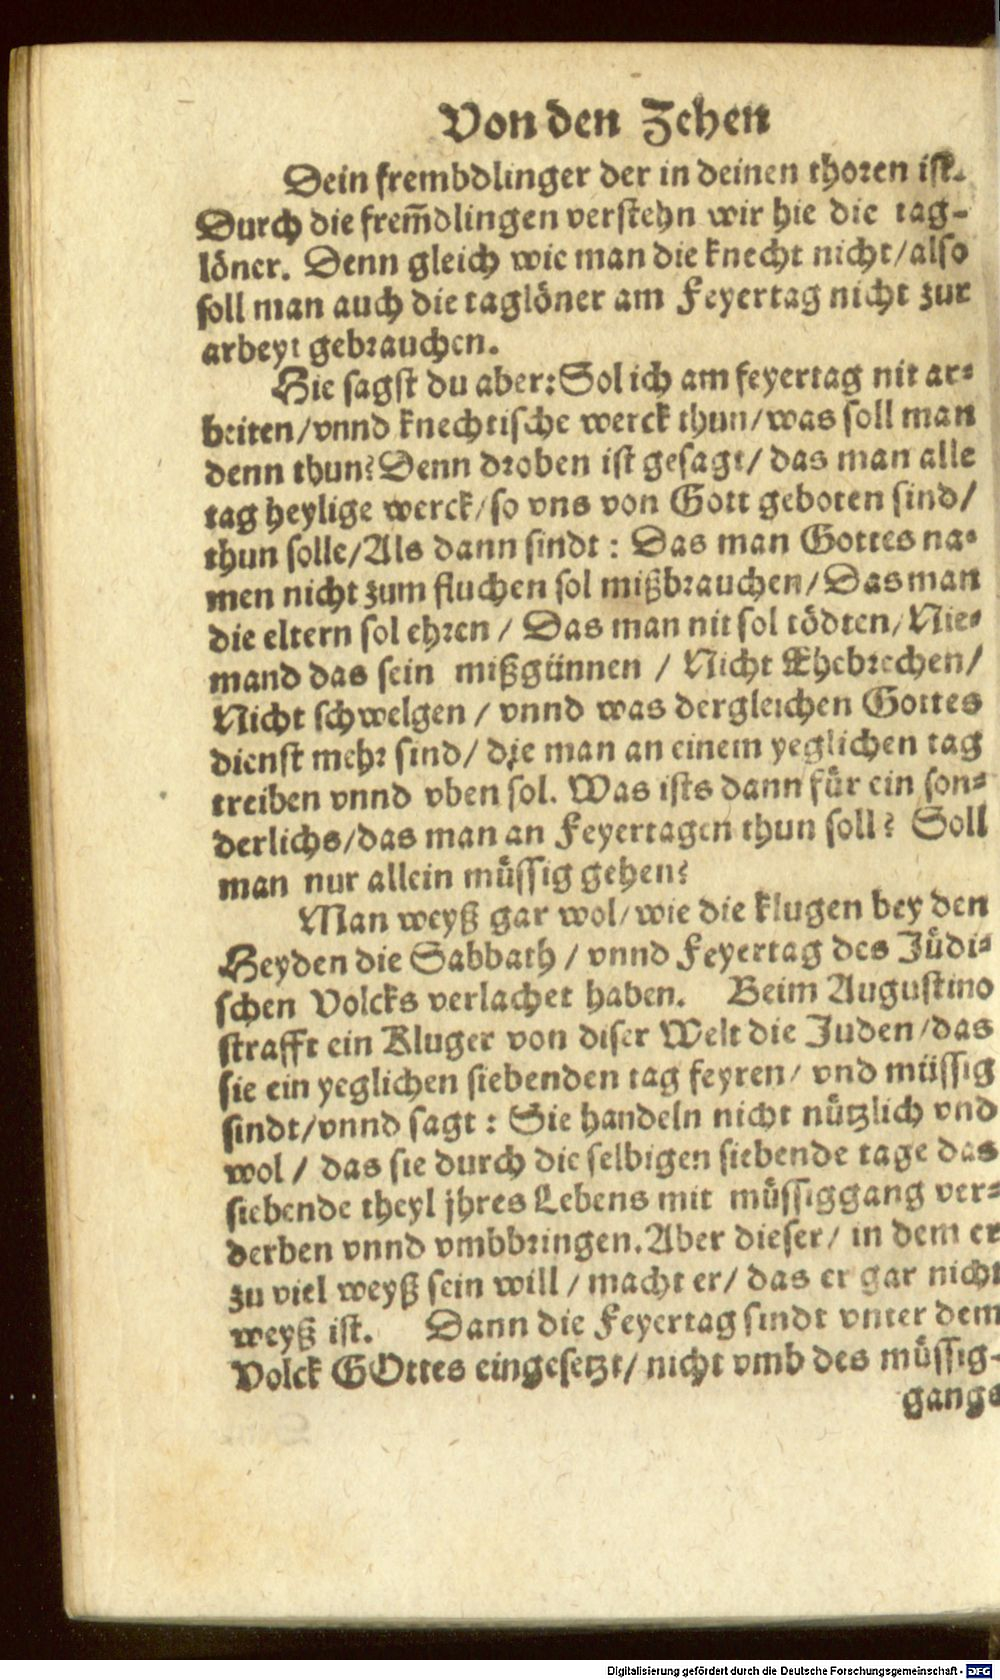 Von den Zehen
Dein frembdlinger der in deinen thoren ist.
Durch die frem̃dlingen verstehn wir hie die tag-
löner. Denn gleich wie man die knecht nicht/also
soll man auch die taglöner am Feyertag nicht zur
arbeyt gebrauchen.
Hie sagst du aber: Sol ich am feyertag nit ar-
beiten/vnnd knechtische werck thun/was soll man
denn thun? Denn droben ist gesagt/ das man alle
tag heylige werck/so vns von Gott geboten sind/
thun solle/Als dann sindt : Das man Gottes na-
men nicht zum fluchen sol mißbrauchen/Das man
die eltern sol ehren / Das man nit sol tödten/Nie-
mand das sein mißgünnen / Nicht Ehebrechen/
Nicht schwelgen / vnnd was dergleichen Gottes
dienst mehr sind/ die man an einem yeglichen tag
treiben vnnd vben sol. Was ists dann für ein son-
derlichs/das man an Feyertagen thun soll? Soll
man nur allein müssig gehen?
Man weyß gar wol/wie die klugen bey den
Heyden die Sabbath / vnnd Feyertag des Jüdi-
schen Volcks verlachet haben. Beim Augustino
strafft ein Kluger von diser Welt die Juden/das
sie ein yeglichen siebenden tag feyren/ vnd müssig
sindt/vnnd sagt : Sie handeln nicht nützlich vnd
wol / das sie durch die selbigen siebende tage das
siebende theyl jhres Lebens mit müssiggang ver-
derben vnnd vmbbringen. Aber dieser/ in dem er
zu viel weyß sein will / macht er/ das er gar nicht
weyß ist. Dann die Feyertag sindt vnter dem
Volck GOttes eingesetzt/ nicht vmb des müssig-
gangs
Digitalisierung gefördert durch die Deutsche Forschungsgemeinschaft - DFG